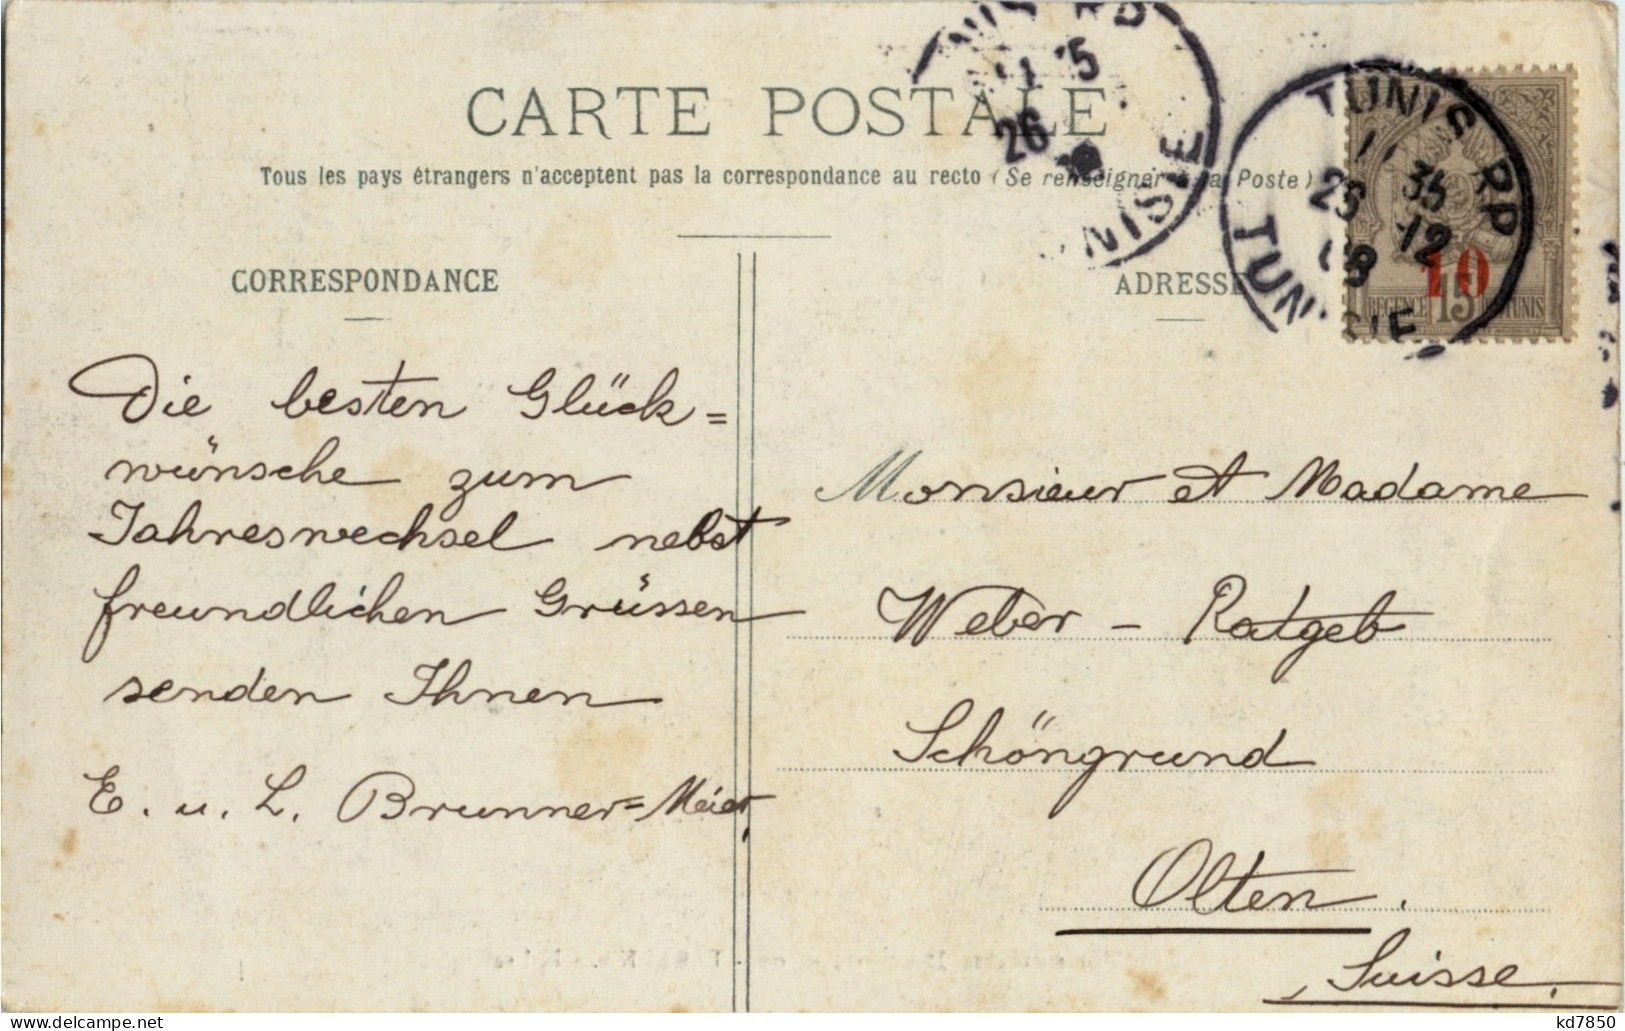 CARTE POSTALE
Tous les pays étrangers n'acceptent pas la correspondance au recto (Se renseigner à la Poste)
CORRESPONDANCE
ADRESSE
TUNIS RP
11 35
26 12
08
TUNISIE
10
REGENCE 15 DE TUNIS
Die besten Glück=
wünsche zum
Jahreswechsel nebst
freundlichen Grüssen
senden Ihnen
E. u. L. Brunner=Meier,
Monsieur et Madame
Weber - Ratgeb
Schöngrund
Olten.
Suisse.
kd7850